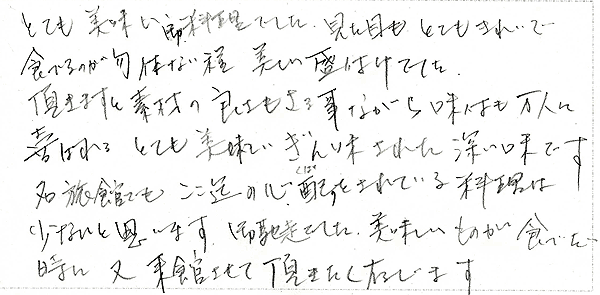 とても美味しい御料理でした。見た目もとてもきれいで
食べるのが勿体ない程美しい盛付けでした。
頂きますと素材の良さもさる事ながら味付も万人に
喜ばれるとても美味しいぎん味された深い味です
名旅館でもここ迄の心配りをされている料理は
少ないと思います。御馳走でした。美味しいものが食べたい
時に又来館させて頂きたく存じます